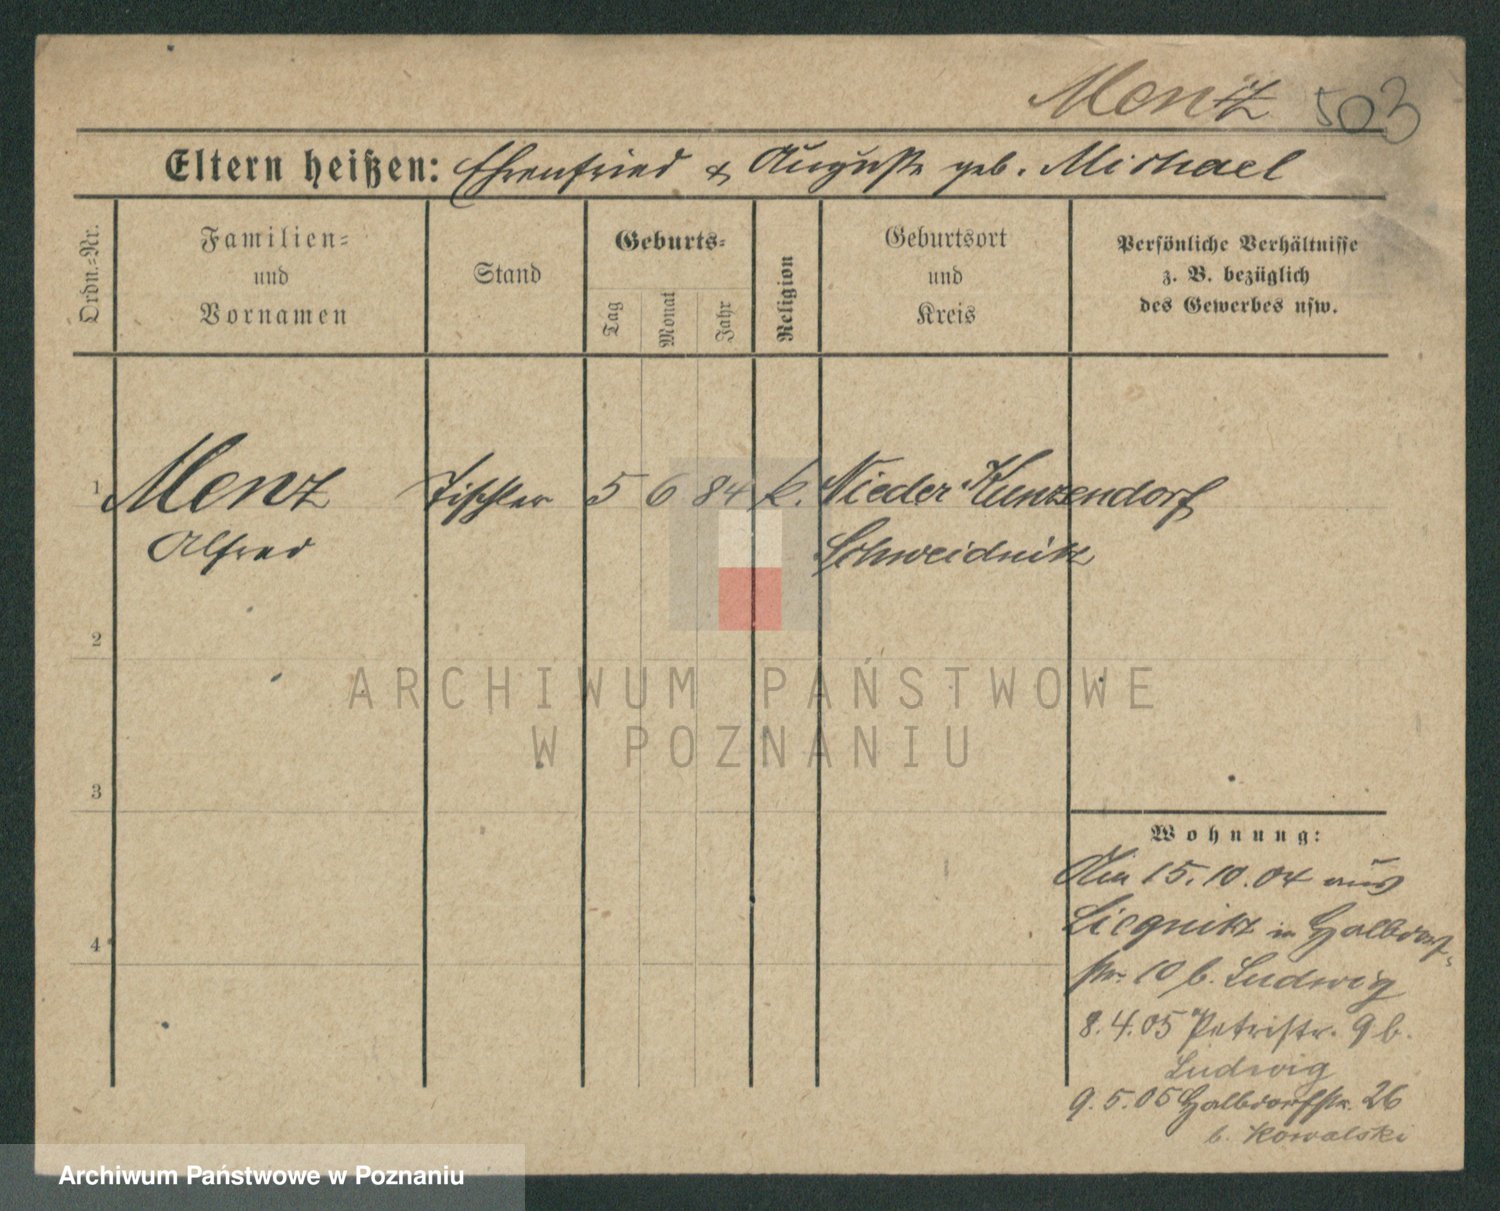 Menz 503
Eltern heißen: Ehrenfried & Auguste geb. Michael
Ordn.=Nr.
Familien=
und
Vornamen
Stand
Geburts=
Tag
Monat
Jahr
Religion
Geburtsort
und
Kreis
Persönliche Verhältnisse
z. B. bezüglich
des Gewerbes usw.
1 Menz Tischler 5 6 84 k. Nieder Kunzendorf
Alfred Schweidnitz
2
ARCHIWUM PAŃSTWOWE
W POZNANIU
3
Wohnung:
Am 15.10.04 aus
Liegnitz in Halbdorf-
str. 10 b. Ludwig
8.4.05 Petristr. 9 b.
Ludwig
9.5.05 Halbdorfstr. 26
b. Kowalski
4
Archiwum Państwowe w Poznaniu